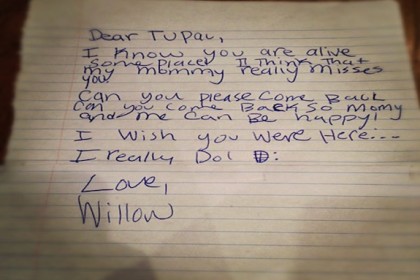 Dear Tupac,
I Know you are alive
some place! I Think That
my mommy really misses
you.
Can you please come Back
Can you come Back so Momy
and me can Be happy!
I Wish you Were Here...
I really Do! D:
Love,
Willow